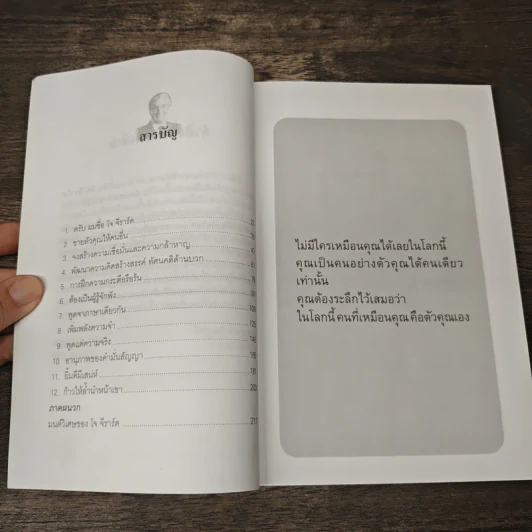 สารบัญ
1. ครับ ผมชื่อ โจ จีราร์ด
2. ขายตัวคุณให้คนอื่น
3. จงสร้างความเชื่อมั่นและความกล้าหาญ
4. พัฒนาความคิดสร้างสรรค์ ทัศนคติด้านบวก
5. การฝึกความกระตือรือร้น
6. ต้องเป็นผู้รู้จักฟัง
7. พูดจาภาษาเดียวกัน
8. เพิ่มพลังความจำ
9. พูดแต่ความจริง
10. อานุภาพของคำมั่นสัญญา
11. ยิ้มดีมีเสน่ห์
12. ก้าวให้ล้ำนำหน้าเขา
ภาคผนวก
มนต์วิเศษของ โจ จีราร์ด
ไม่มีใครเหมือนคุณได้เลยในโลกนี้
คุณเป็นคนอย่างตัวคุณได้คนเดียว
เท่านั้น
คุณต้องระลึกไว้เสมอว่า
ในโลกนี้ คนที่เหมือนคุณ คือตัวคุณเอง